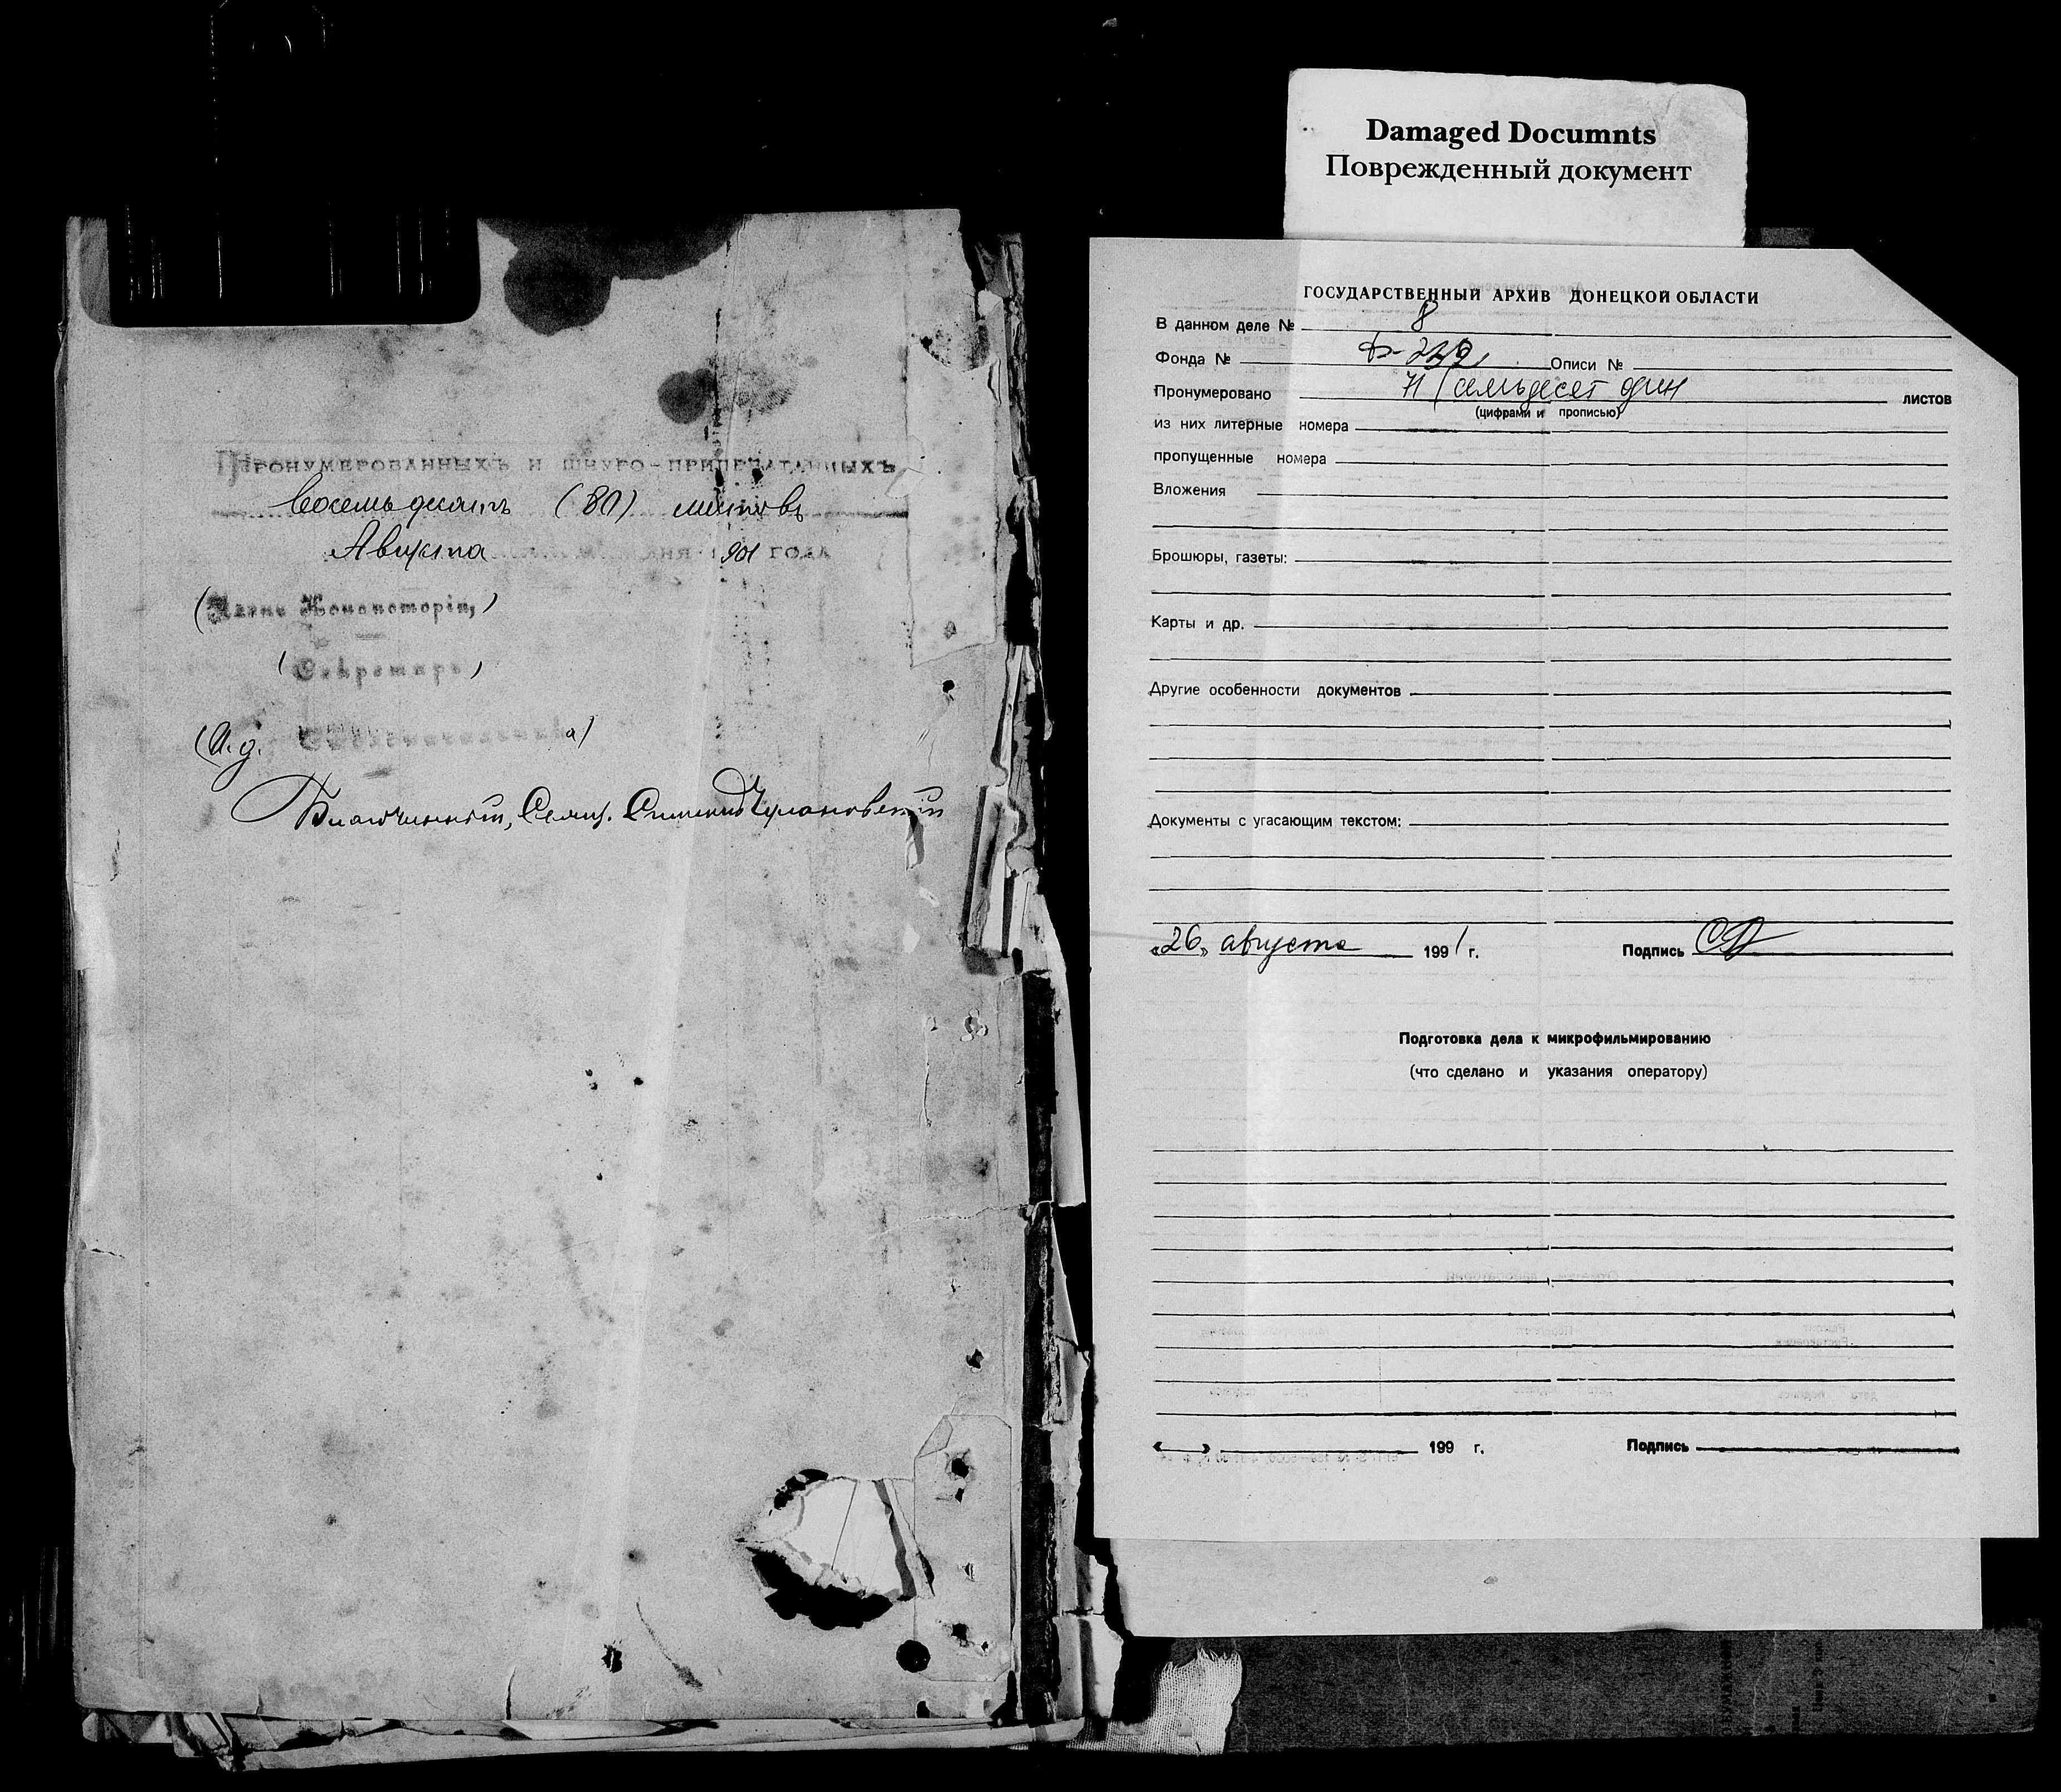 Damaged Documnts
Поврежденный документ
Пронумерованныхъ и шнуро-припечатанныхъ
восемьдесятъ (80) листовъ
Августа дня 1901 года
(Члены Консисторіи,)
(Секретарь,)
(И. д. а)
Благочинный, Свящ. Симеонъ
ГОСУДАРСТВЕННЫЙ АРХИВ ДОНЕЦКОЙ ОБЛАСТИ
В данном деле № 8
Фонда № Ф-229, Описи №
Пронумеровано 71 (семьдесят один листов
(цифрами и прописью)
из них литерные номера
пропущенные номера
Вложения
Брошюры, газеты:
Карты и др.
Другие особенности документов
Документы с угасающим текстом:
«26» августа 1991 г. Подпись
Подготовка дела к микрофильмированию
(что сделано и указания оператору)
« » 199 г. Подпись